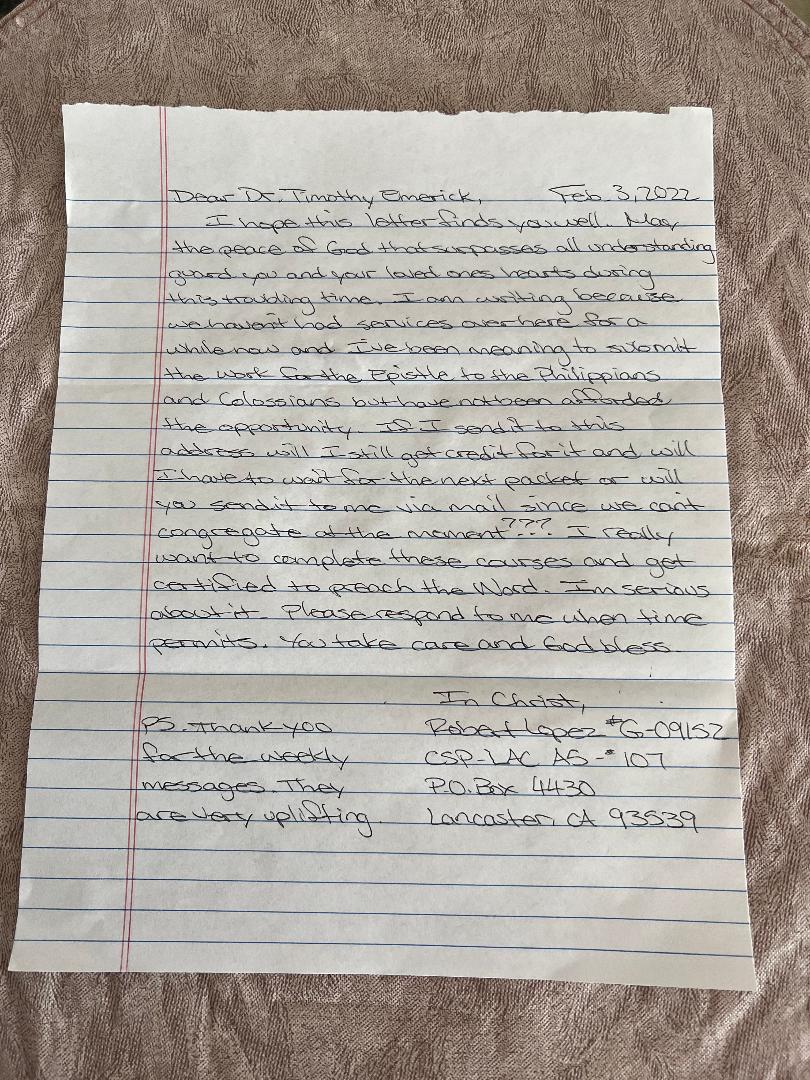 Dear Dr. Timothy Emerick, Feb. 3, 2022
I hope this letter finds you well. May
the peace of God that surpasses all understanding
guard you and your loved ones hearts during
this troubling time. I am writing because
we haven't had services over here for a
while now and I've been meaning to submit
the work for the Epistle to the Philippians
and Colossians but have not been afforded
the opportunity. If I send it to this
address will I still get credit for it and will
I have to wait for the next packet or will
you send it to me via mail since we can't
congregate at the moment??? I really
want to complete these courses and get
certified to preach the Word. I'm serious
about it. Please respond to me when time
permits. You take care and God bless.
In Christ,
Robert Lopez #G-09152
CSP-LAC A5-#107
P.O. Box 4430
Lancaster, CA 93539
PS. Thank you
for the weekly
messages. They
are very uplifting.